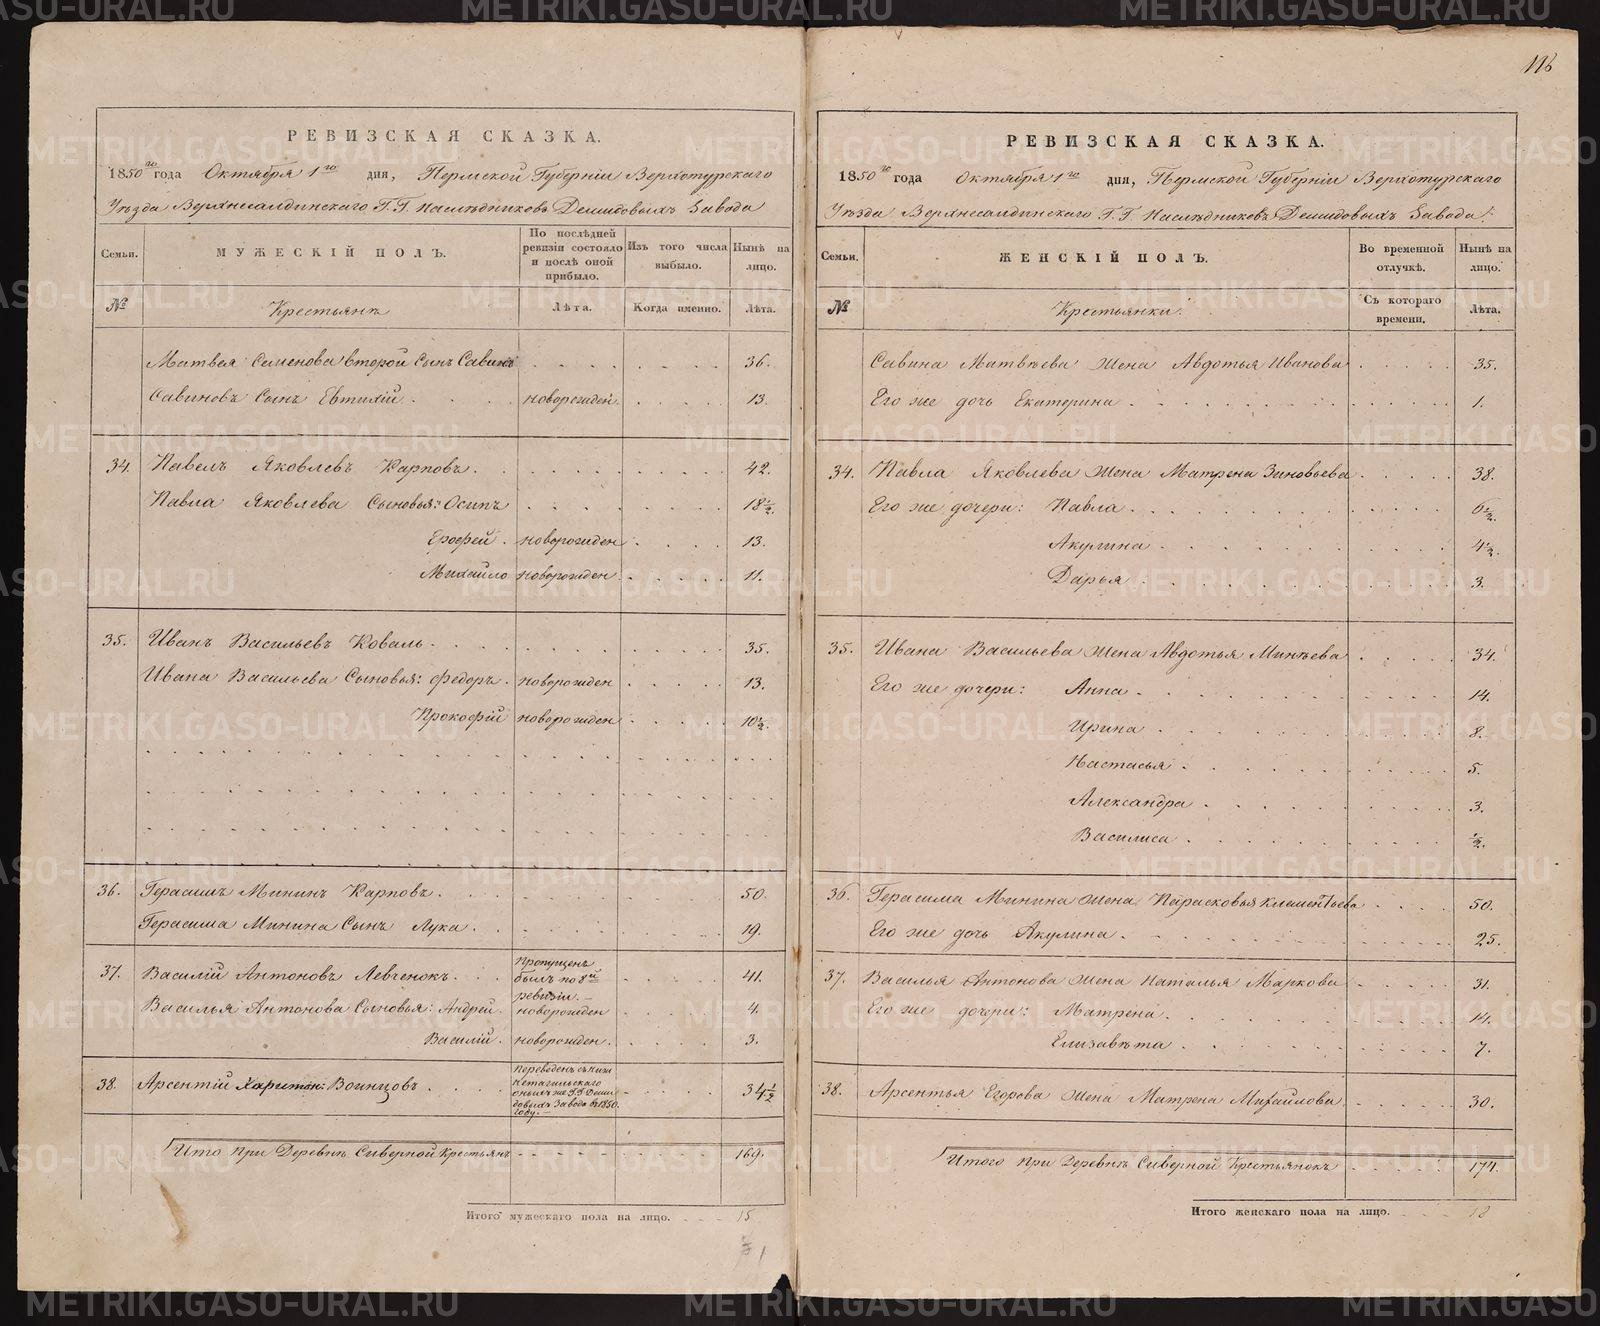 118
РЕВИЗСКАЯ СКАЗКА.
1850го года Октября 1го дня, Пермской Губерніи Верхотурскаго
Уѣзда Верхнесалдинскаго Г.Г. Наслѣдниковъ Демидовыхъ Завода
Семьи. МУЖЕСКІЙ ПОЛЪ. По послѣдней ревизіи состояло и послѣ оной прибыло. Изъ того числа выбыло. Нынѣ на лицо.
№ Крестьянъ Лѣта. Когда именно. Лѣта.
Матвея Семенова второй сынъ Савинъ 36.
Савиновъ Сынъ Евтихій новорожден. 13.
34. Павелъ Яковлевъ Карповъ. 42.
Павла Яковлева Сыновья: Осипъ 18½.
Ерофей новорожден 13.
Михайло новорожден 11.
35. Иванъ Васильевъ Коваль. 35.
Ивана Васильева Сыновья: Федоръ. новорожден 13.
Прокофій новорожден 10½.
36. Герасимъ Мининъ Карповъ. 50.
Герасима Минина Сынъ Лука. 19.
37. Василій Антоновъ Левченокъ. Пропущенъ былъ по 8й ревизіи. 41.
Василья Антонова Сыновья: Андрей. новорожден 4.
Василій. новорожден. 3.
38. Арсентій Харитон: Воинцовъ. Переведенъ съ Нижнетагильскаго оныхъ же Г.Г. Демидовыхъ Завода въ 1850. году. 34½
Итого при Деревнѣ Сиверной Крестьянъ 169.
Итого мужескаго пола на лицо. 15
РЕВИЗСКАЯ СКАЗКА.
1850го года Октября 1го дня, Пермской Губерніи Верхотурскаго
Уѣзда Верхнесалдинскаго Г.Г. Наслѣдниковъ Демидовыхъ Завода.
Семьи. ЖЕНСКІЙ ПОЛЪ. Во временной отлучкѣ. Нынѣ на лицо.
№ Крестьянки. Съ котораго времени. Лѣта.
Савина Матвѣева Жена Авдотья Иванова 35.
Его же дочь Екатерина 1.
34. Павла Яковлева Жена Матрена Зиновьева 38.
Его же дочери: Павла 6½.
Акулина 4½.
Дарья 3.
35. Ивана Васильева Жена Авдотья Минѣева 34.
Его же дочери: Анна 14.
Ирина 8.
Настасья 5.
Александра 3.
Василиса ½.
36. Герасима Минина Жена Парасковья Клементьева 50.
Его же дочь Акулина. 25.
37. Василья Антонова Жена Наталья Маркова 31.
Его же дочери: Матрена. 14.
Елизавѣта 7.
38. Арсентья Егорова Жена Матрена Михайлова 30.
Итого при Деревнѣ Сиверной Крестьянокъ 174.
Итого женскаго пола на лицо. 18
METRIKI.GASO-URAL.RU